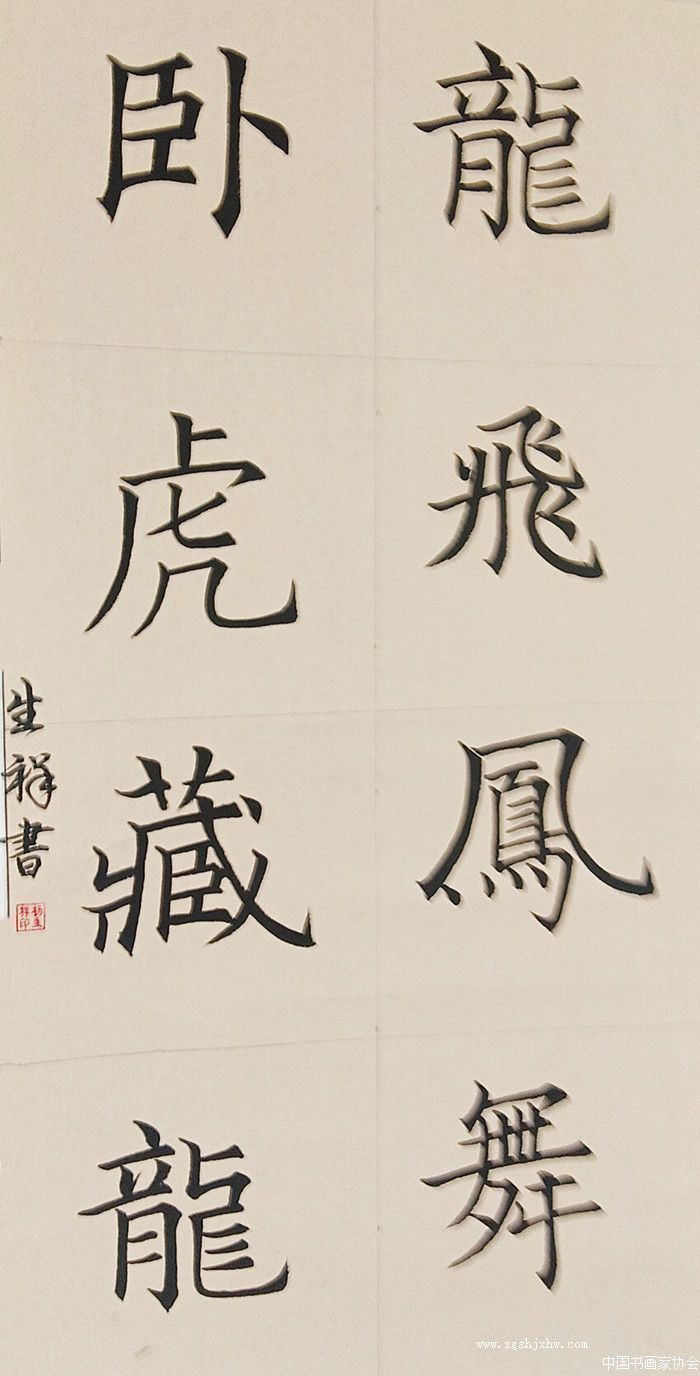 龍飛鳳舞
卧虎藏龍
生祥書
www.zgshjxhw.com
中国书画家协会